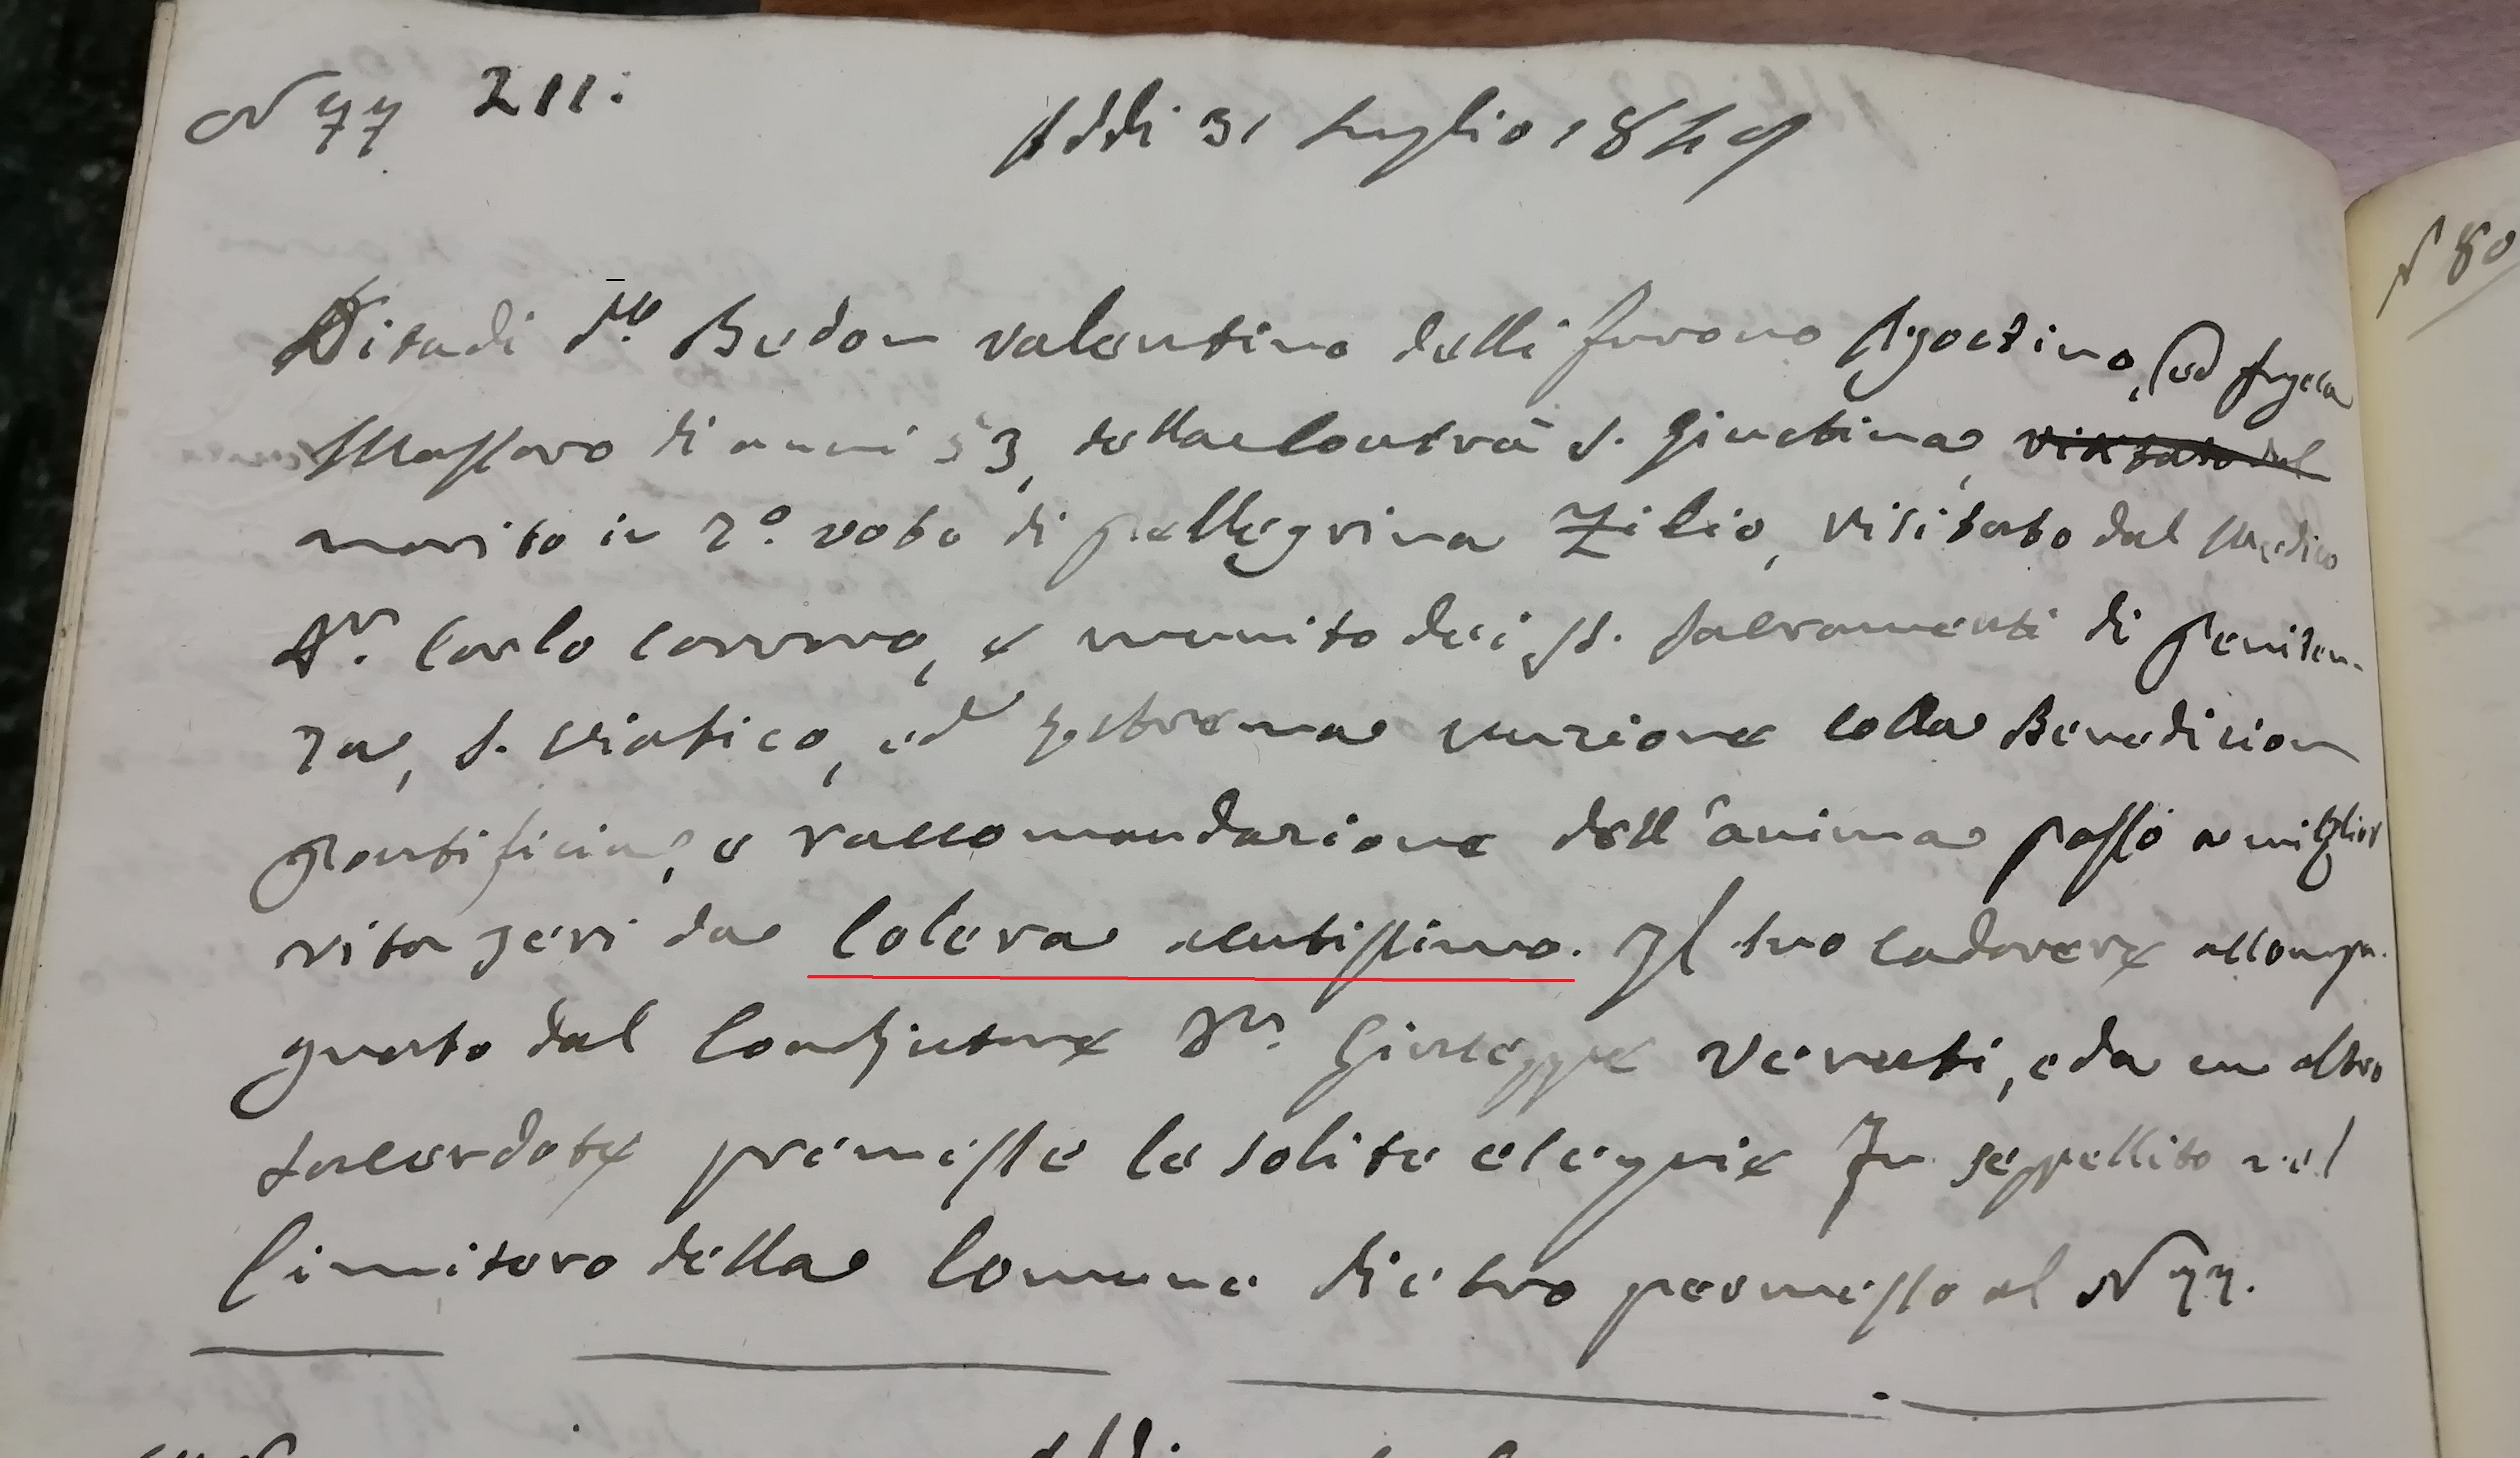 N 77 211:
Addi 31 Luglio 1849
Bedon Valentino delli furono Agostino, ed Angela
Massaro di anni 53, della Contrà S. Giustina, visitato dal
marito in 2º. voto di Pellegrina Zilio, visitato dal Medico
Dr. Carlo Carraro, e munito dei SS. Sacramenti di Peniten-
za, S. Viatico, ed Estrema unzione colla Benedicion
Pontificia, e raccomandazione dell'anima passò a miglior
vita jeri da Colera acutissimo. Il suo cadavere accompa-
gnato dal Coadjutore Dn. Giuseppe Veruti, e da un altro
Sacerdote premesse le solite esequie fu seppellito nel
Cimitero della Comune dietro permesso al N 77.
N 80
Addi